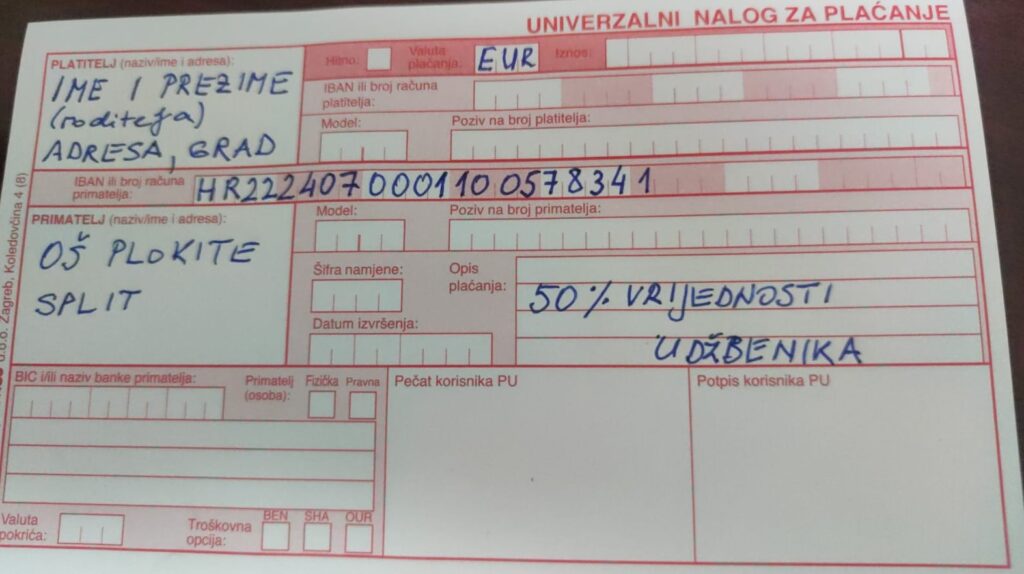 UNIVERZALNI NALOG ZA PLAĆANJE
PLATITELJ (naziv/ime i adresa):
IME I PREZIME
(roditelja)
ADRESA, GRAD
Hitno:
Valuta plaćanja:
EUR
Iznos:
IBAN ili broj računa
platitelja:
Model:
Poziv na broj platitelja:
IBAN ili broj računa
primatelja:
HR2224070001100578341
PRIMATELJ (naziv/ime i adresa):
OŠ PLOKITE
SPLIT
Model:
Poziv na broj primatelja:
Šifra namjene:
Opis
plaćanja:
50% VRIJEDNOSTI
UDŽBENIKA
Datum izvršenja:
BIC i/ili naziv banke primatelja:
Primatelj
(osoba):
Fizička
Pravna
Pečat korisnika PU
Potpis korisnika PU
Valuta
pokrića:
Troškovna
opcija:
BEN
SHA
OUR
d.o.o. Zagreb, Koledovčina 4 (8)